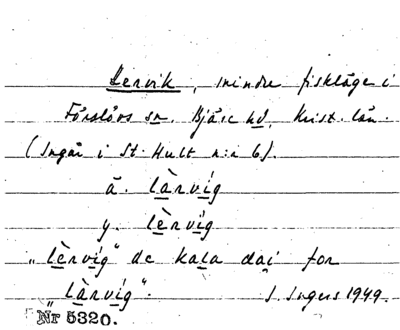 Lervik, mindre fiskläge i
Förslövs sn. Bjäre hd, Krist. län.
(Ingår i St. Hult n:r 6).
ä. làrvíg
y. lèrvíg
"lèrvíg" de kala dai for
"làrvíg". I. Ingers 1949.
Nr 5320.